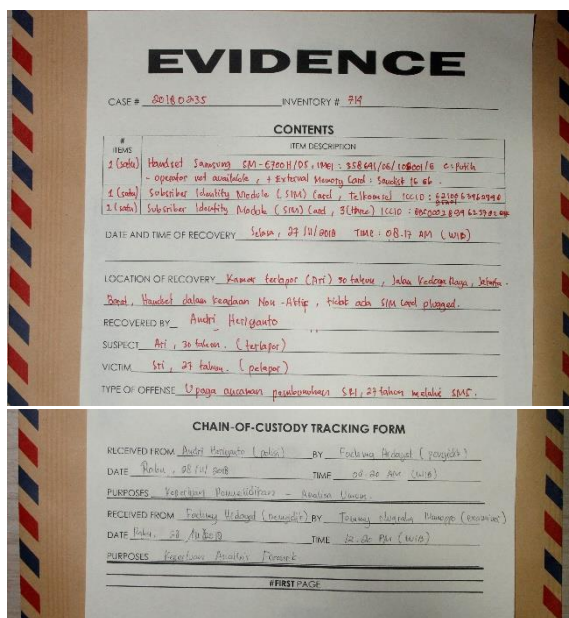 EVIDENCE
CASE # 20180235 INVENTORY # 714
CONTENTS
# ITEMS ITEM DESCRIPTION
1 (satu) Handset Samsung SM-E700H/DS, IMEI :
- operator not available, + External Memory Card : Sandisk 16 Gb.
1 (satu) Subsriber Identity Module (SIM) Card, Telkomsel ICCID :
1 (satu) Subsriber Identity Module (SIM) Card, 3 (three) ICCID :
DATE AND TIME OF RECOVERY Selasa, 27/11/2018 TIME : 08.17 AM (WIB)
LOCATION OF RECOVERY Kamar terlapor (Ari) 30 tahun, Jalan Kedoya Raya, Jakarta
Barat, Handset dalam keadaan Non-Aktif, tidak ada SIM Card plugged.
RECOVERED BY Andri Heriyanto
SUSPECT Ari, 30 tahun. (terlapor)
VICTIM Sri, 27 tahun. (pelapor)
TYPE OF OFFENSE Upaya ancaman pembunuhan SRI, 27 tahun melalui SMS.
CHAIN-OF-CUSTODY TRACKING FORM
RECEIVED FROM Andri Heriyanto (polisi) BY Hidayat (penyidik)
DATE Rabu, 28/11/2018 TIME AM (WIB)
PURPOSES Keperluan Penyelidikan - Analisa Umum.
RECEIVED FROM Hidayat (penyidik) BY Tommy (examiner)
DATE Rabu, 28/11/2018 TIME PM (WIB)
PURPOSES Keperluan Analisis Forensik
#FIRST PAGE